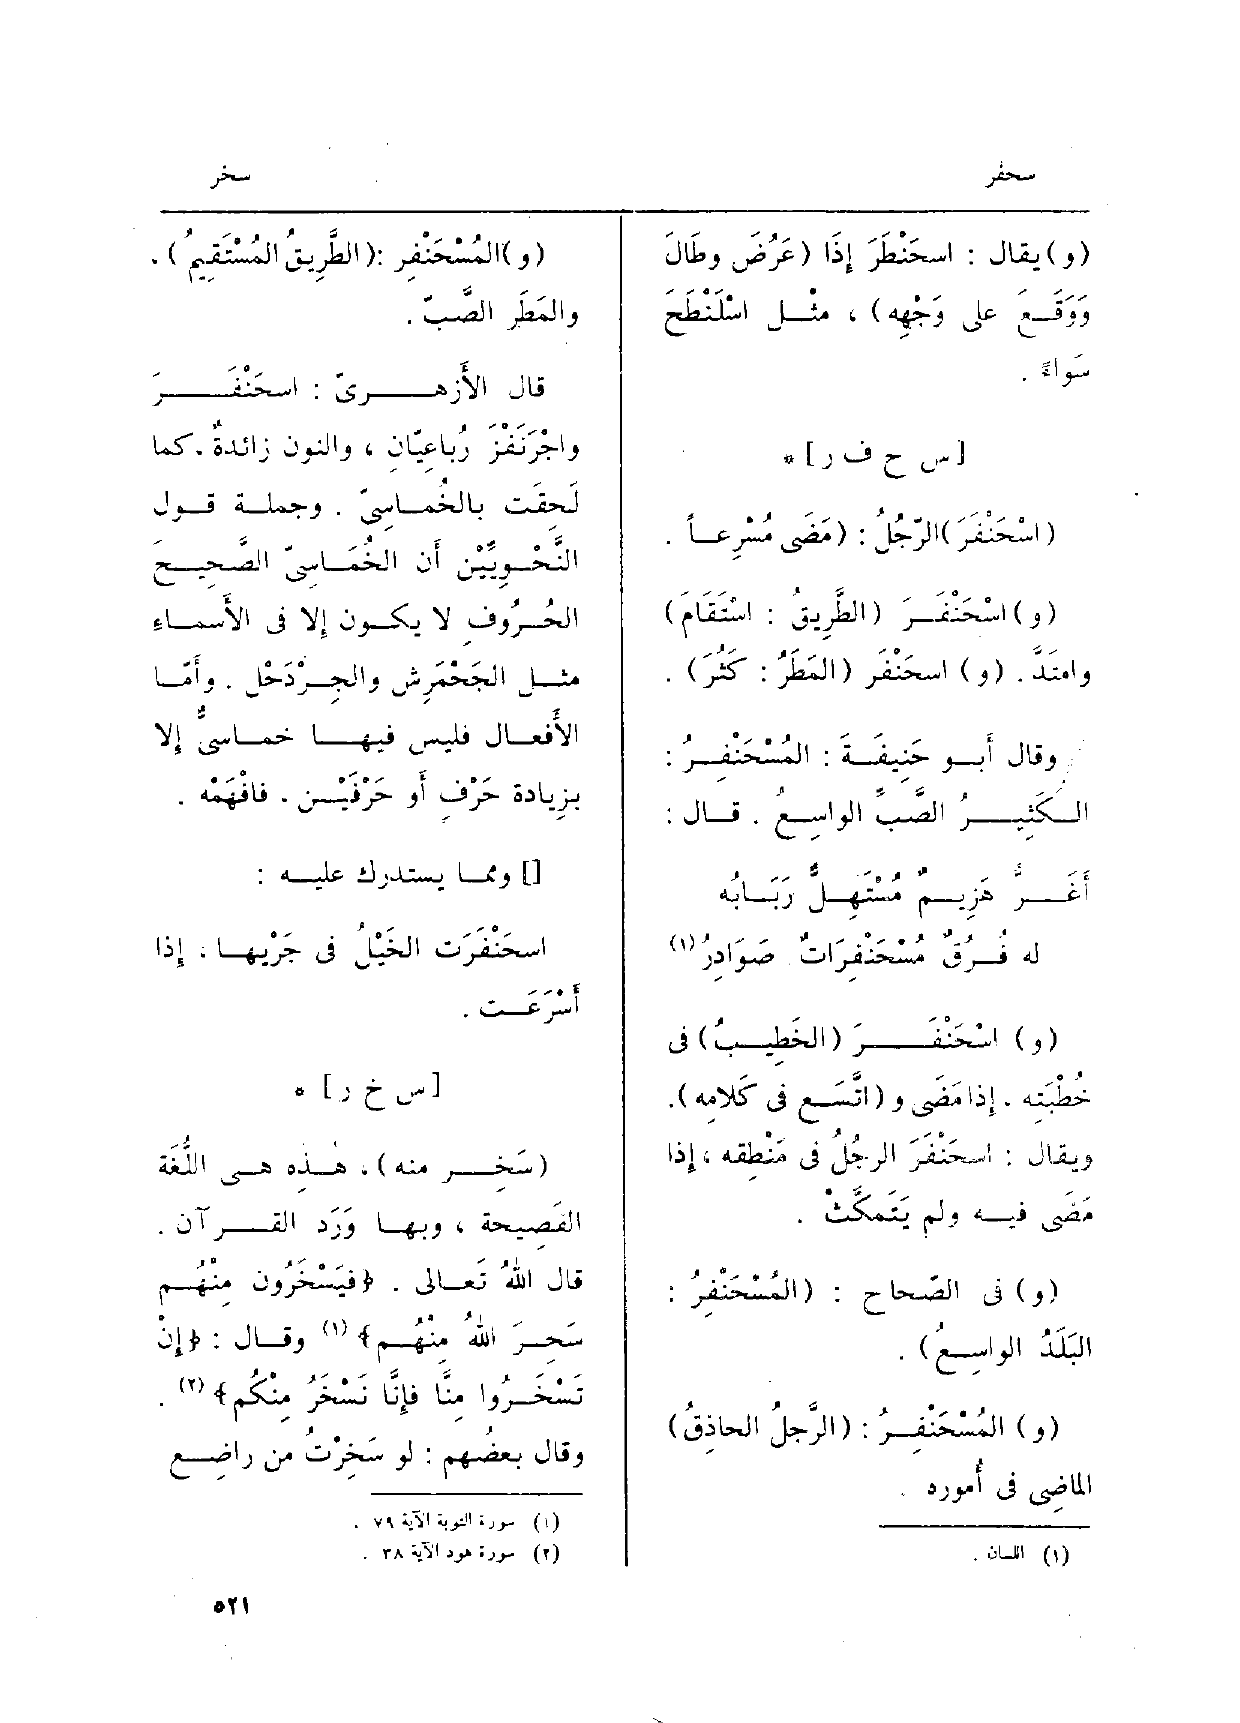 سحفر
سخر
(و) يقال : اسحَنْطَرَ إذَا (عَرُضَ وطَالَ
وَوَقَع على وَجْهِه) ، مثْل اسْلَنْطَحَ
سَواءً .
[ س ح ف ر ] *
(اسْحَنْفَرَ) الرّجُلُ : (مَضَى مُسْرِعاً .
(و) اسْحَنْفَرَ (الطَّرِيقُ : اسْتَقَامَ)
وامتدَّ . (و) اسحَنْفَر (المَطَرُ : كَثُرَ) .
وقال أَبو حَنِيفَةَ : المُسْحَنْفِرُ :
الكَثِيرُ الصَّبِّ الواسِعُ . قال :
أَغَرُّ هَزِيمٌ مُسْتَهِلٌّ رَبَابُه
له فُرُقٌ مُسْحَنْفِرَاتٌ صَوَادِرُ (١)
(و) اسْحَنْفَرَ (الخَطِيبُ) فى
خُطْبَتِه . إذا مَضَى و (اتَّسَع فى كَلامِه) .
ويقال : اسحَنْفَرَ الرجُلُ فى مَنْطِقه ، إذا
مَضَى فيه ولم يَتَمكَّثْ .
(و) فى الصّحاح : (المُسْحَنْفِرُ :
البَلَدُ الواسِعُ) .
(و) المُسْحَنْفِرُ : (الرَّجلُ الحاذِقُ)
الماضِى فى أُموره .
(١) اللسان .
(و) المُسْحَنْفِر : (الطَّرِيقُ المُسْتَقِيمُ) .
والمَطَر الصَّبّ .
قال الأَزهرىّ : اسحَنْفَرَ
واجْرَنْفَزَ رُباعِيّان ، والنون زائدةٌ . كما
لَحِقَت بالخُماسِىّ . وجملة قول
النَّحْوِيِّيْن أَن الخُمَاسِىّ الصَّحِيحَ
الحُرُوفِ لا يكون إلا فى الأَسماءِ
مثل الجَحْمَرِش والجِرْدَحْل . وأَمّا
الأَفعال فليس فيها خماسىٌّ إلا
بزِيادة حَرْفٍ أَو حَرْفَيْن . فافْهَمْه .
[] ومما يستدرك عليه :
اسحَنْفَرَت الخَيْلُ فى جَرْيِها : إذا
أَسْرَعَت .
[ س خ ر ] *
(سَخِر منه) ، هٰذه هى اللُّغَة
الفَصِيحة ، وبها وَرَدَ القرآن .
قال اللهُ تَعالى . ﴿فيَسْخَرُون مِنْهُم
سَخِرَ اللهُ مِنْهُم﴾ (١) وقال : ﴿إنْ
تَسْخَرُوا مِنَّا فإنَّا نَسْخَرُ مِنْكُم﴾ (٢) .
وقال بعضُهم : لو سَخِرْتُ من راضِعٍ
(١) سورة التوبة الآية ٧٩ .
(٢) سورة هود الآية ٣٨ .
٥٢١